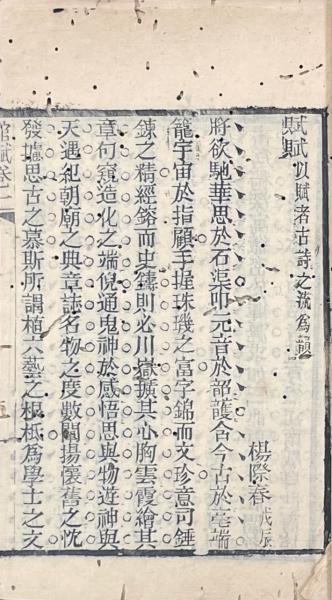 賦賦 以賦者古詩之流爲韻
楊際春 戊辰
將欲馳華思於石渠叩元音於韶護含今古於毫端
籠宇宙於指顧手握珠璣之富字錦而文珍意可錘
鍊之精經鎔而史鑄則必川嶽擴其心胸雲霞繪其
章句窺造化之端倪通鬼神於感悟思與物遊神與
天遇紀朝廟之典章誌名物之度數闡揚懷舊之忱
發攄思古之慕斯所謂植六藝之根柢爲學士之文
館賦卷二